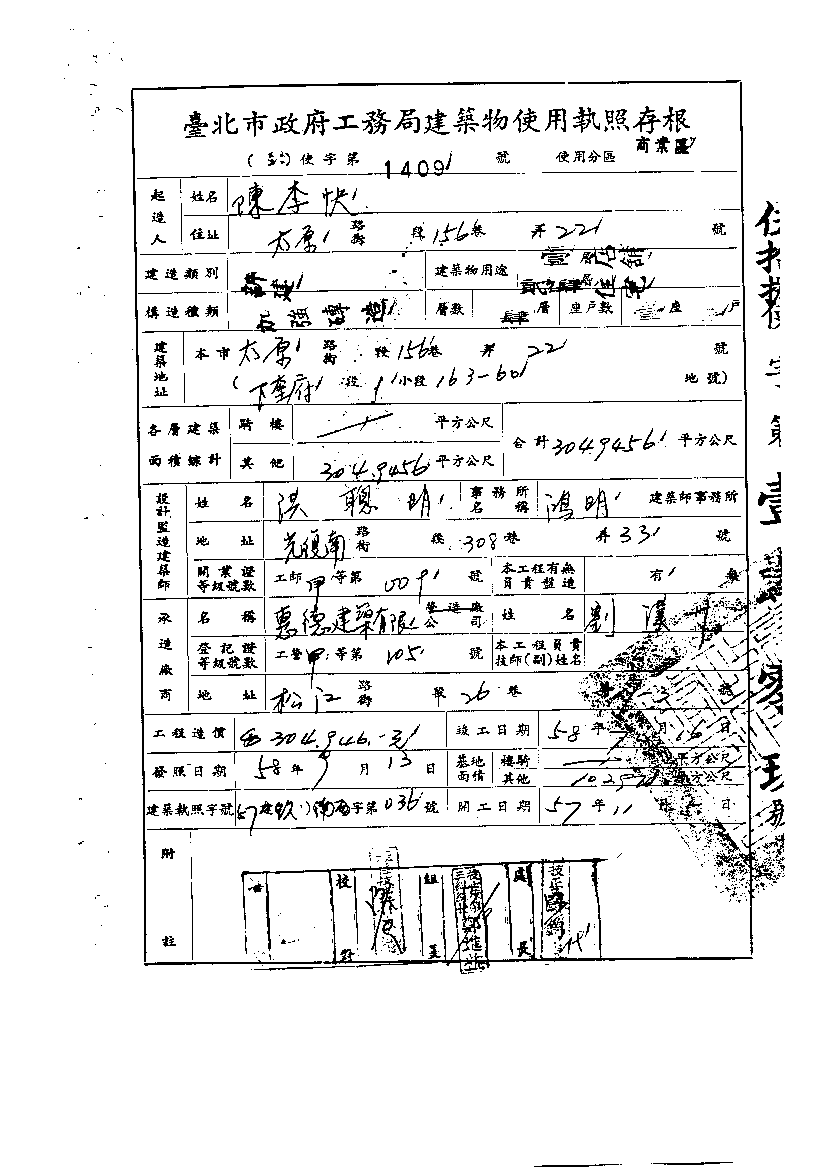 臺北市政府工務局建築物使用執照存根
商業區
使字第 1409 號 使用分區
起造人 姓名 陳李快
住址 太原 路街 段 156 巷 弄 22 號
建造類別 新建 建築物用途 壹層店舖
貳至肆層住宅
構造種類 加強磚造 層數 肆 層 座戶數 壹 座 戶
建築地址 本市 太原 路街 段 156 巷 弄 22 號
(下奎府 段 1 小段 163-60 地號)
各層建築面積總計 騎樓 平方公尺 合計 304.9456 平方公尺
其他 304.9456 平方公尺
設計監造建築師 姓名 洪聰明 事務所名稱 鴻明 建築師事務所
地址 光復南 路街 段 308 巷 弄 33 號
開業證等級號數 工師 甲 等第 009 號 本工程有無負責監造 有 無
承造廠商 名稱 惠德建築有限 營造廠公司 姓名 劉漢
登記證等級號數 工營 甲 等第 105 號 本工程負責技師(副)姓名
地址 松江 路街 段 26 巷 3 號
工程造價 304,946.-元 竣工日期 58 年 月 15 日
發照日期 58 年 9 月 13 日 基地面積 騎樓 平方公尺
其他 平方公尺
建築執照字號 57 建 字第 036 號 開工日期 57 年 11 月 日
附註
校對 組長 處長